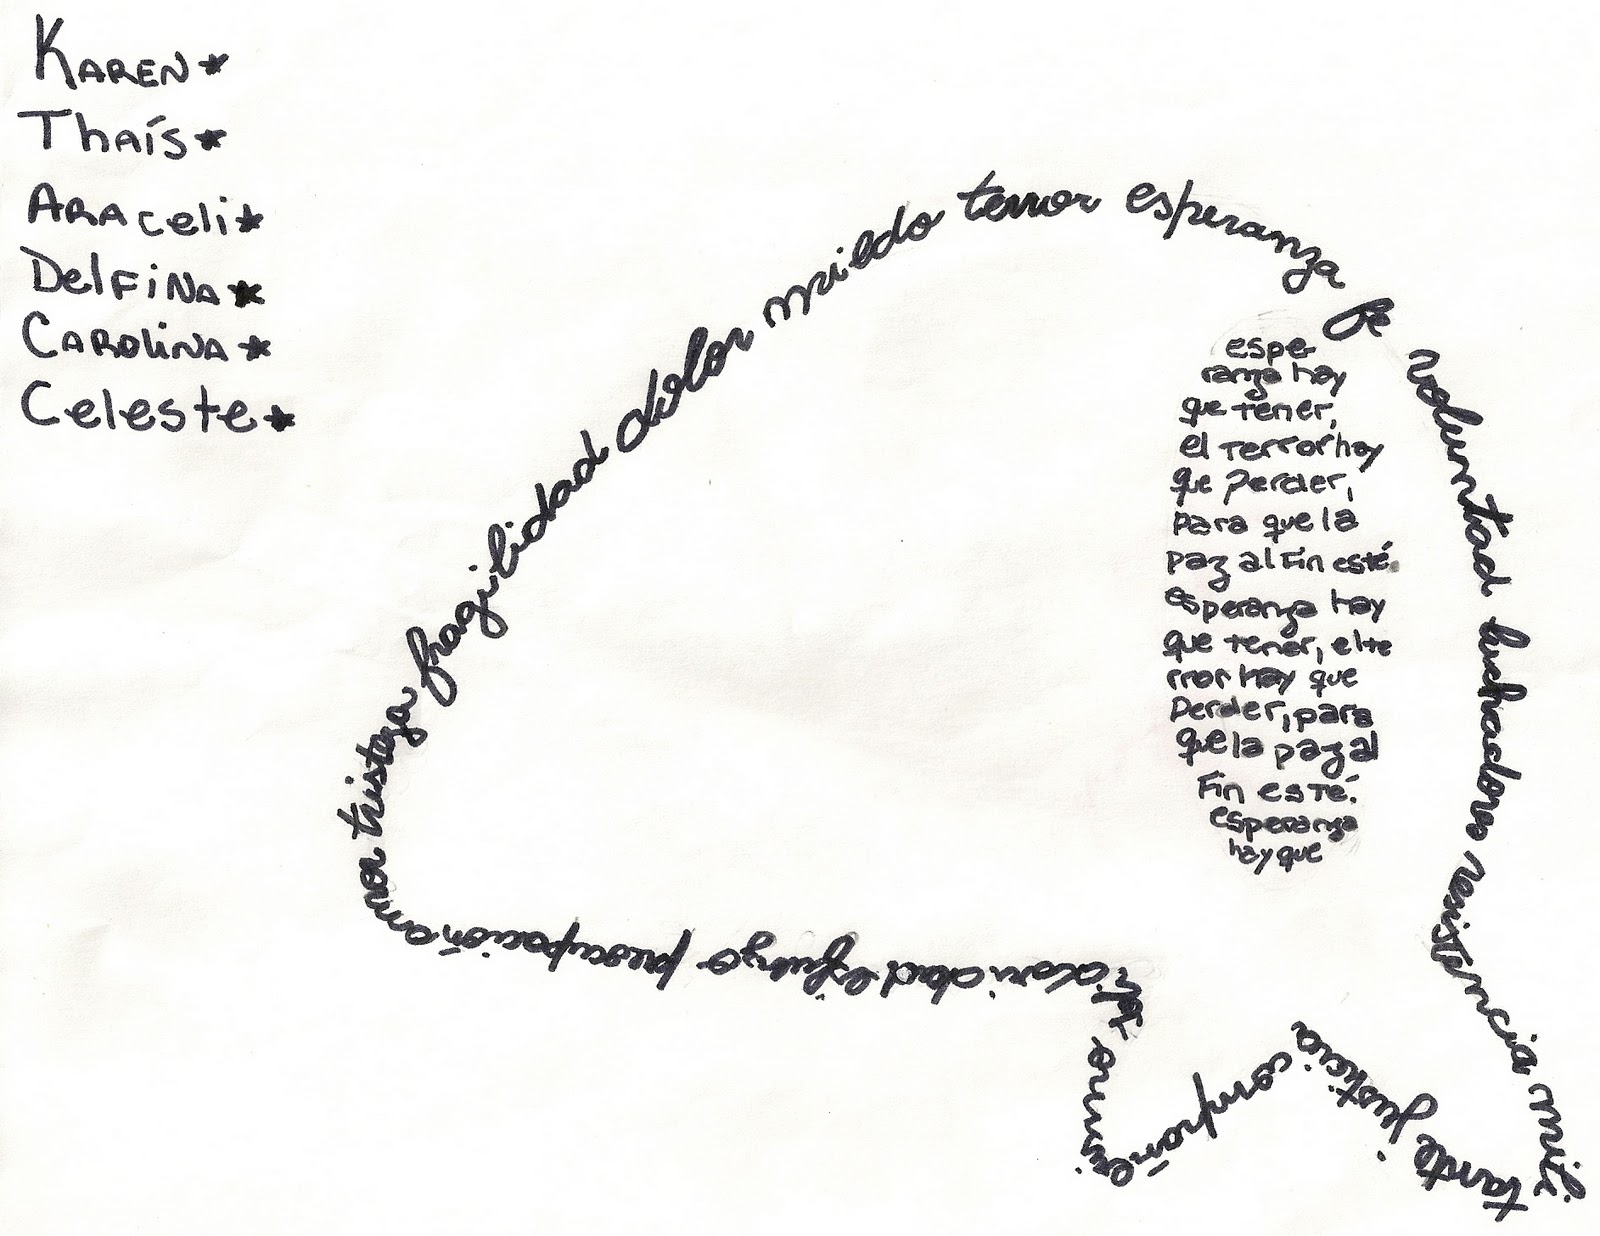 Karen★
Thaís★
Araceli★
Delfina★
Carolina★
Celeste★
amor tristeza fragilidad dolor miedo terror esperanza fe voluntad luchadores resistencia mili
tante justicia comprom
preocupación
espe-
ranza hay
que tener,
el terror hay
que perder,
para que la
paz al fin esté.
esperanza hay
que tener, el te
rror hay que
perder, para
que la paz al
fin esté.
esperanza
hay que